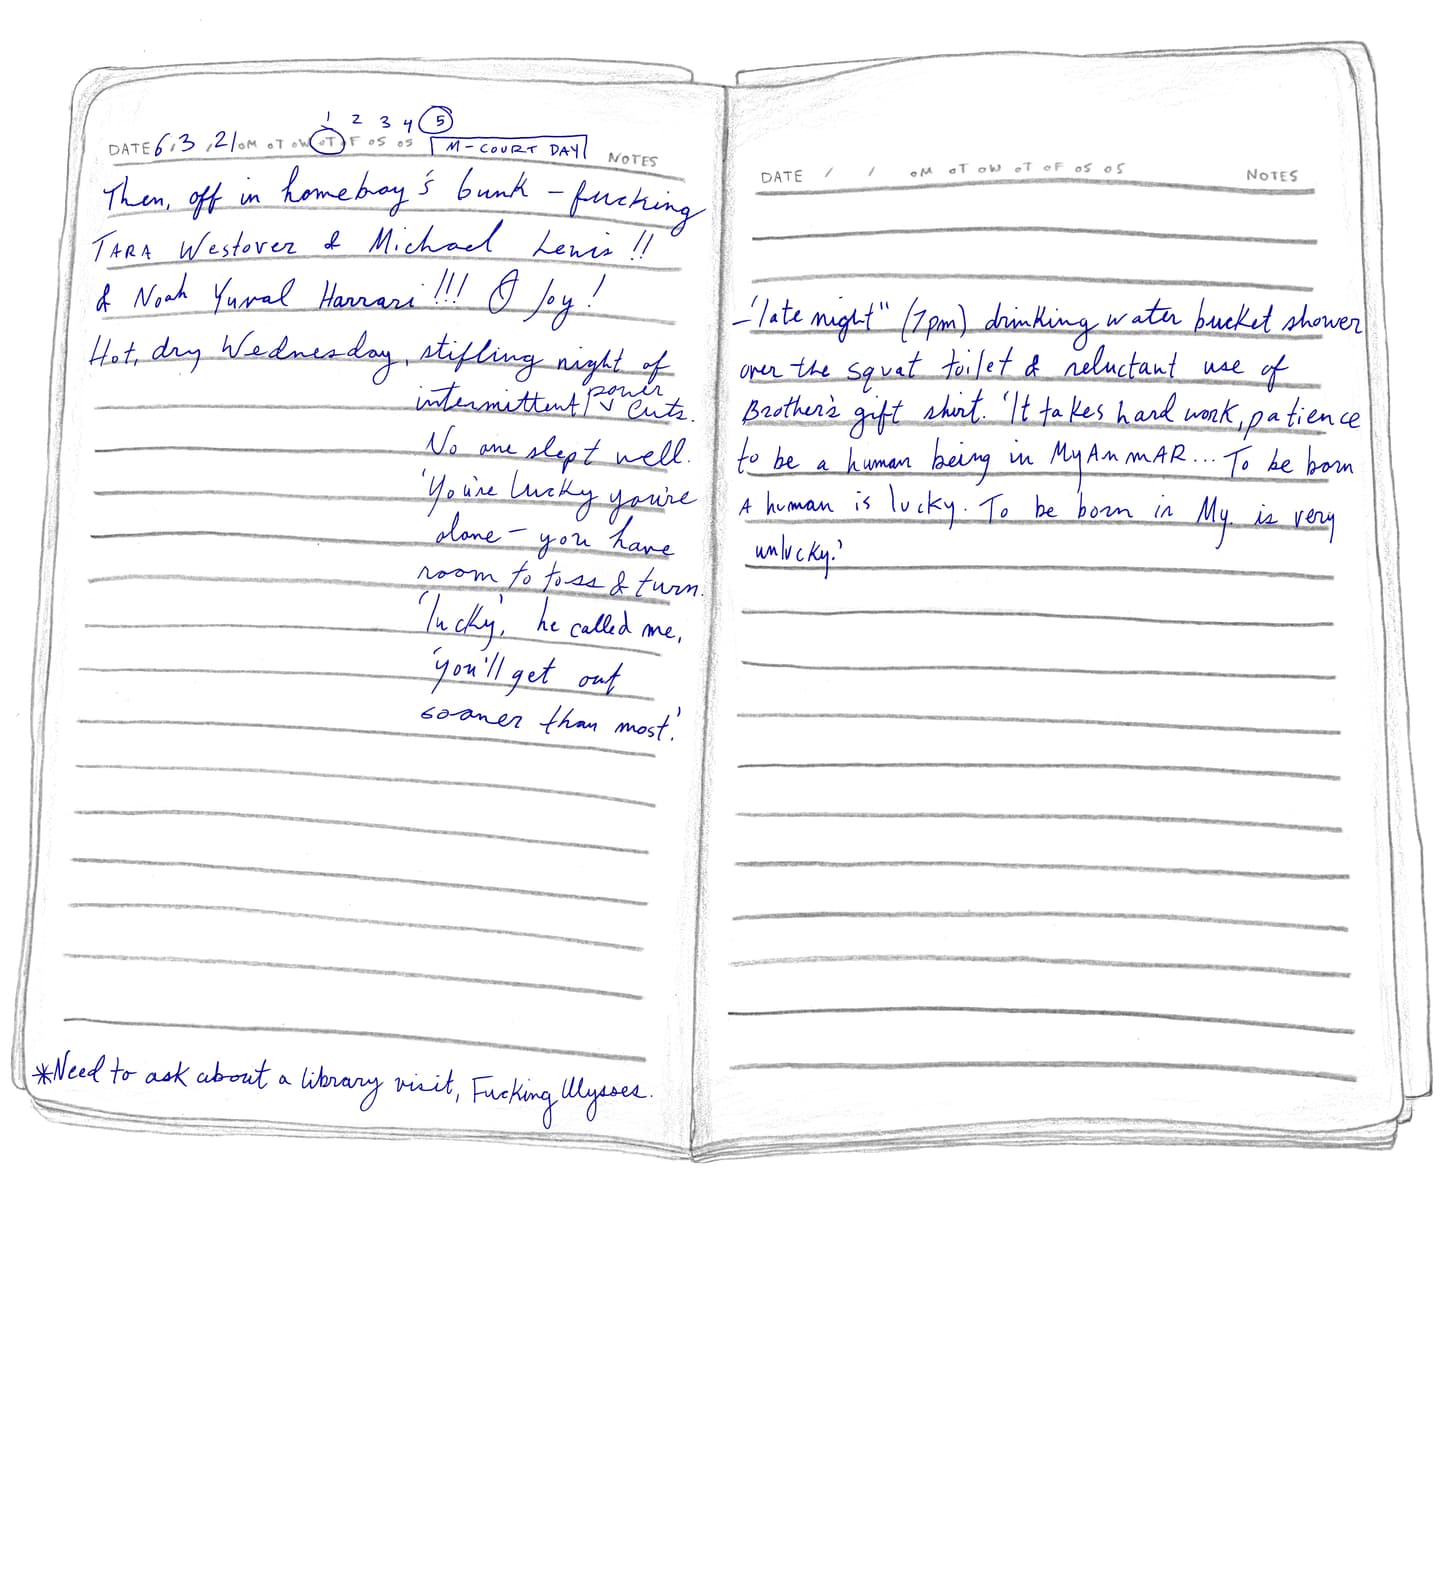 1 2 3 4 5
DATE 6.3.21 oM oT oW oT oF oS oS M-COURT DAY NOTES
Then, off in homeboy's bunk - fucking
TARA Westover & Michael Lewis!!
& Noah Yuval Harrari!!! O Joy!
Hot, dry Wednesday, stifling night of
intermittent power cuts.
No one slept well.
'You're lucky you're
alone - you have
room to toss & turn.
'lucky', he called me,
'you'll get out
sooner than most.'
*Need to ask about a library visit, Fucking Ulysses.
DATE / / oM oT oW oT oF oS oS NOTES
- 'late night" (7pm) drinking water bucket shower
over the squat toilet & reluctant use of
Brother's gift shirt. 'It takes hard work, patience
to be a human being in MyAnmAR... To be born
A human is lucky. To be born in My. is very
unlucky.'